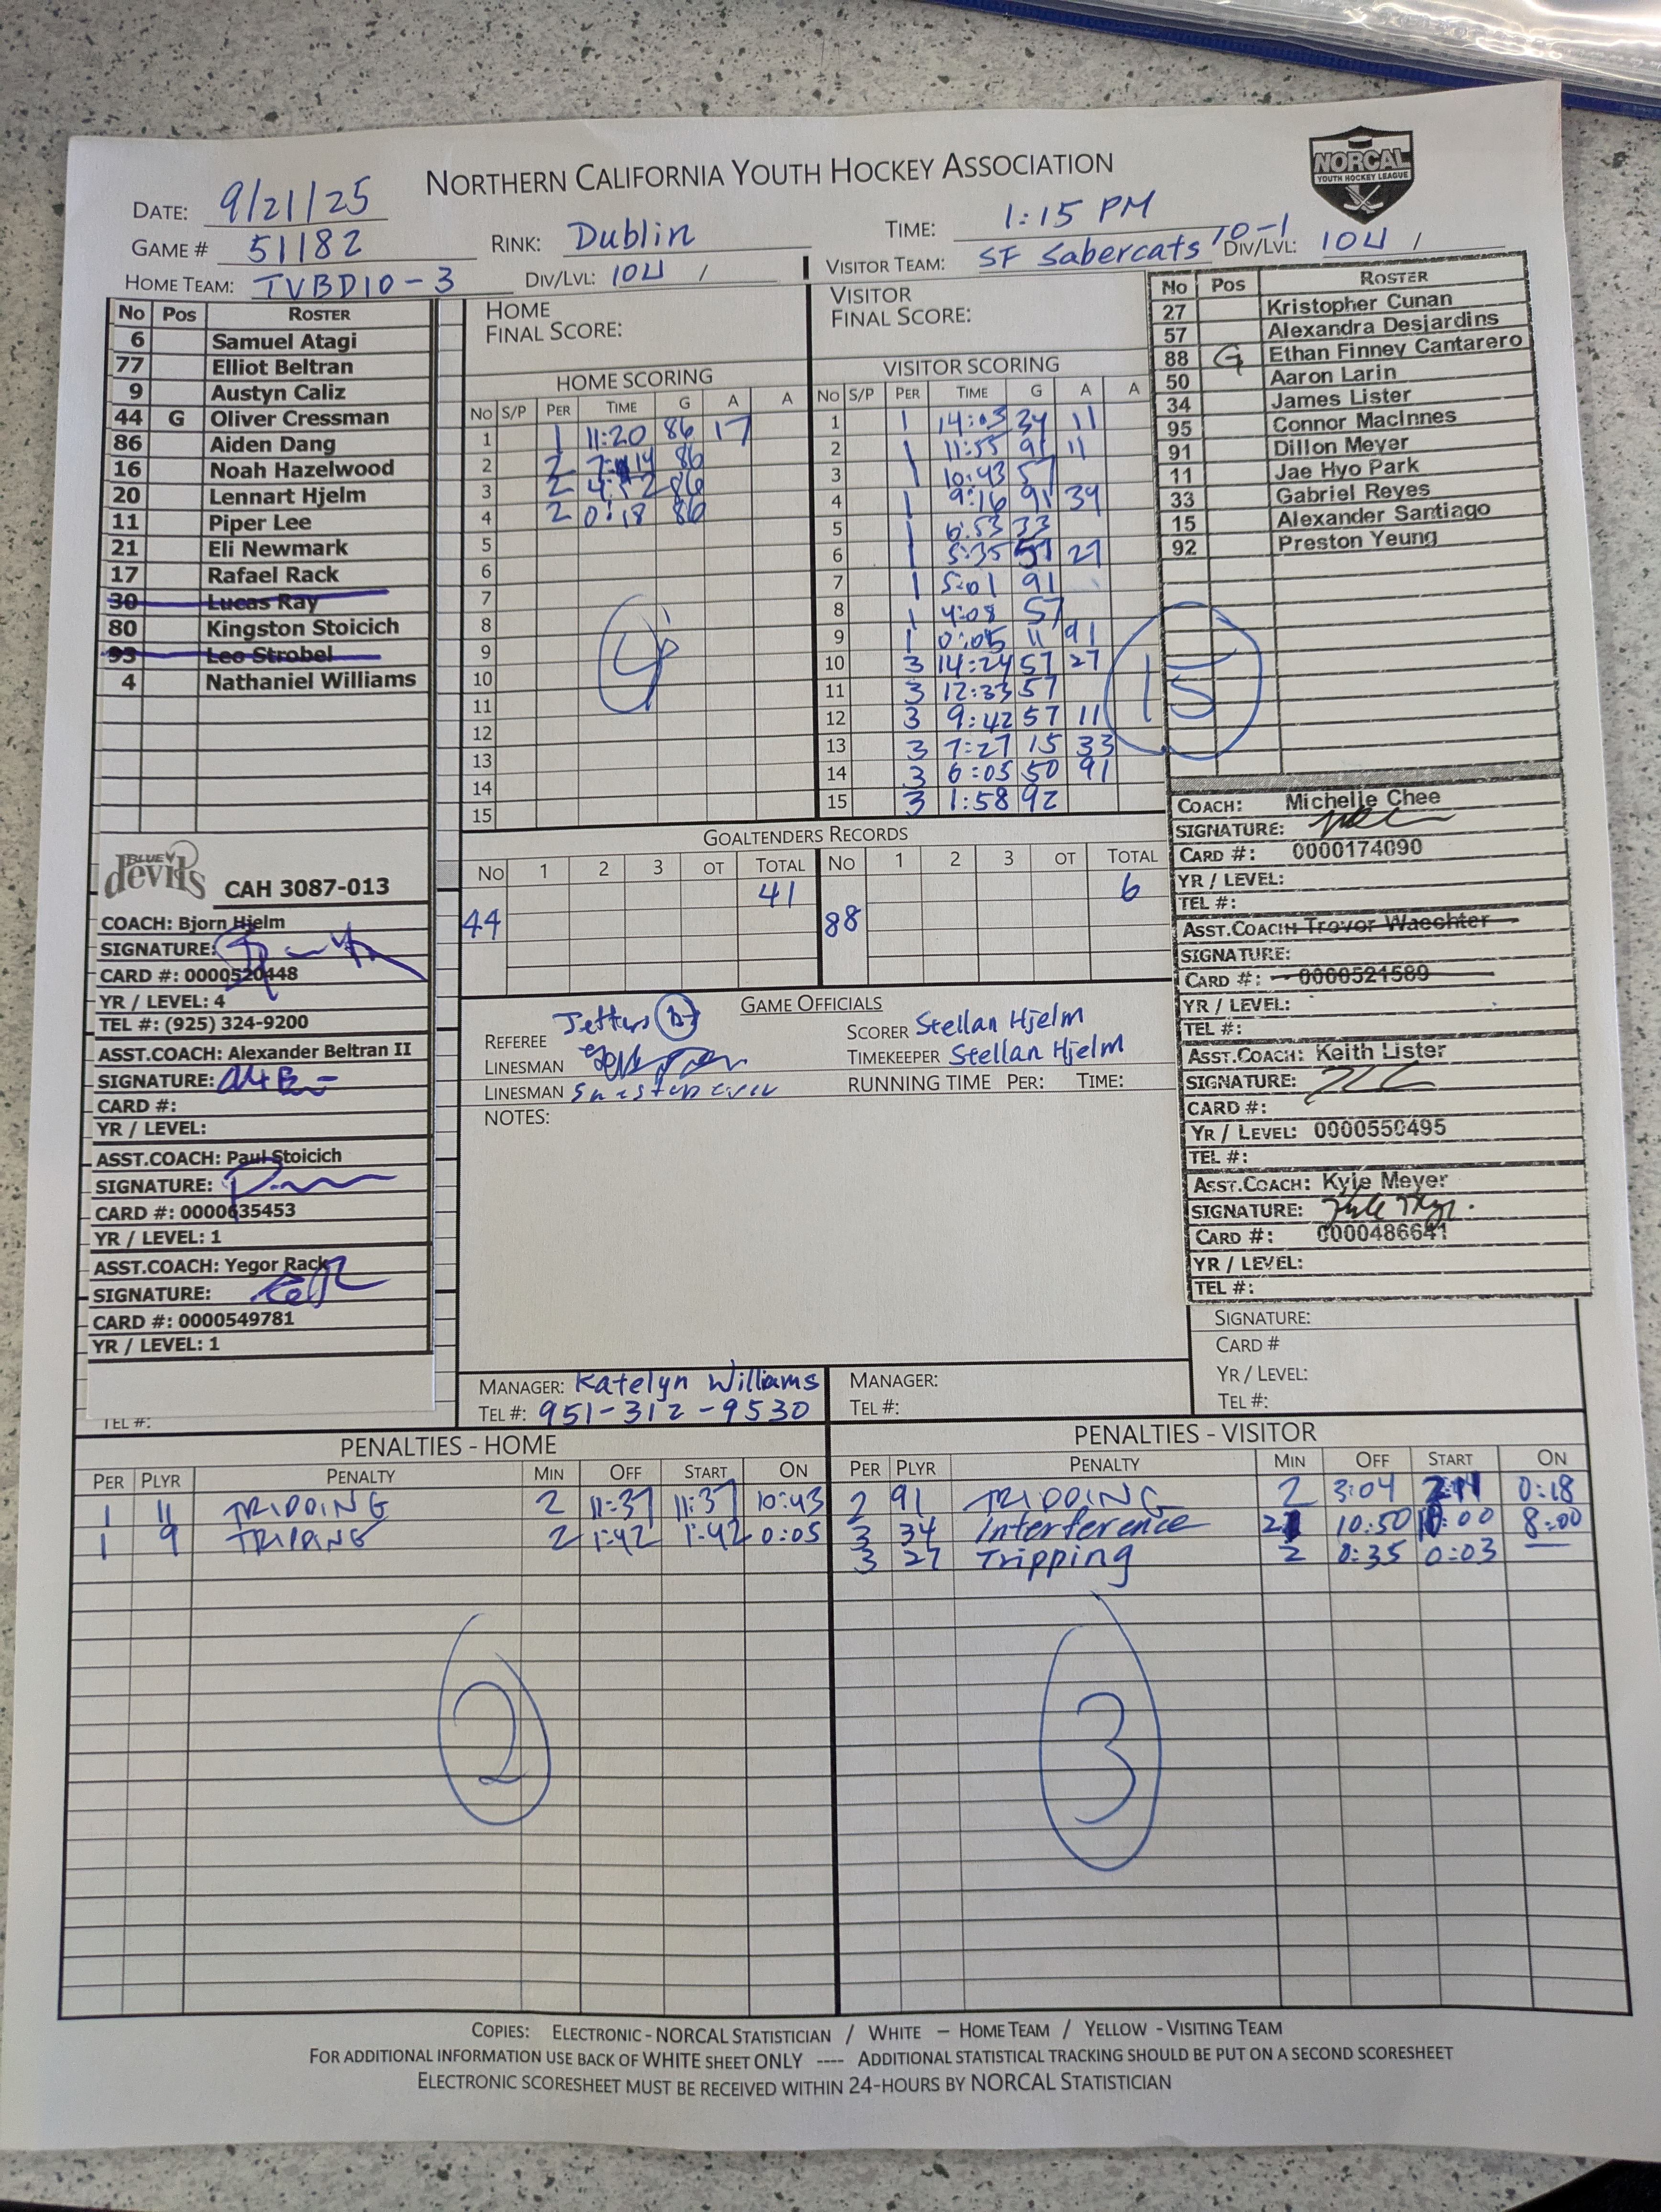 NORTHERN CALIFORNIA YOUTH HOCKEY ASSOCIATION
NORCAL
YOUTH HOCKEY LEAGUE
DATE: 9/21/25
GAME # 51182
RINK: Dublin
TIME: 1:15 PM
HOME TEAM: TVBD10-3
DIV/LVL: 10U /
VISITOR TEAM: SF Sabercats 10-1
DIV/LVL: 10U /
No Pos ROSTER
6 Samuel Atagi
77 Elliot Beltran
9 Austyn Caliz
44 G Oliver Cressman
86 Aiden Dang
16 Noah Hazelwood
20 Lennart Hjelm
11 Piper Lee
21 Eli Newmark
17 Rafael Rack
30 Lucas Ray
80 Kingston Stoicich
93 Leo Strobel
4 Nathaniel Williams
BLUE devils CAH 3087-013
COACH: Bjorn Hjelm
SIGNATURE:
CARD #: 0000520448
YR / LEVEL: 4
TEL #: (925) 324-9200
ASST.COACH: Alexander Beltran II
SIGNATURE:
CARD #:
YR / LEVEL:
ASST.COACH: Paul Stoicich
SIGNATURE:
CARD #: 0000635453
YR / LEVEL: 1
ASST.COACH: Yegor Rack
SIGNATURE:
CARD #: 0000549781
YR / LEVEL: 1
TEL #:
HOME
FINAL SCORE:
HOME SCORING
No S/P PER TIME G A A
1 1 11:20 86 17
2 2 7:14 86
3 2 4:52 86
4 2 0:18 86
5
6
7
8
9
10
11
12
13
14
15
4
VISITOR
FINAL SCORE:
VISITOR SCORING
No S/P PER TIME G A A
1 1 14:03 34 11
2 1 11:55 91 11
3 1 10:43 57
4 1 9:16 91 34
5 1 6:53 33
6 1 5:35 57 27
7 1 5:01 91
8 1 4:08 57
9 1 0:05 11 91
10 3 14:24 57 27
11 3 12:33 57
12 3 9:42 57 11
13 3 7:27 15 33
14 3 6:05 50 91
15 3 1:58 92
15
GOALTENDERS RECORDS
No 1 2 3 OT TOTAL No 1 2 3 OT TOTAL
44 41 88 6
GAME OFFICIALS
REFEREE
LINESMAN
LINESMAN
SCORER Stellan Hjelm
TIMEKEEPER Stellan Hjelm
RUNNING TIME PER: TIME:
NOTES:
MANAGER: Katelyn Williams
TEL #: 951-312-9530
MANAGER:
TEL #:
No Pos ROSTER
27 Kristopher Cunan
57 Alexandra Desjardins
88 G Ethan Finney Cantarero
50 Aaron Larin
34 James Lister
95 Connor MacInnes
91 Dillon Meyer
11 Jae Hyo Park
33 Gabriel Reyes
15 Alexander Santiago
92 Preston Yeung
COACH: Michelle Chee
SIGNATURE:
CARD #: 0000174090
YR / LEVEL:
TEL #:
ASST.COACH: Trevor Waechter
SIGNATURE:
CARD #: 0000521589
YR / LEVEL:
TEL #:
ASST.COACH: Keith Lister
SIGNATURE:
CARD #:
YR / LEVEL: 0000550495
TEL #:
ASST.COACH: Kyle Meyer
SIGNATURE:
CARD #: 0000486641
YR / LEVEL:
TEL #:
SIGNATURE:
CARD #
YR / LEVEL:
TEL #:
PENALTIES - HOME
PER PLYR PENALTY MIN OFF START ON
1 11 TRIPPING 2 11:37 11:37 10:43
1 9 TRIPPING 2 1:42 1:42 0:05
2
PENALTIES - VISITOR
PER PLYR PENALTY MIN OFF START ON
2 91 TRIPPING 2 3:04 0:18
3 34 Interference 2 10:50 8:00
3 27 Tripping 2 0:35 0:03
3
COPIES: ELECTRONIC - NORCAL STATISTICIAN / WHITE – HOME TEAM / YELLOW - VISITING TEAM
FOR ADDITIONAL INFORMATION USE BACK OF WHITE SHEET ONLY ---- ADDITIONAL STATISTICAL TRACKING SHOULD BE PUT ON A SECOND SCORESHEET
ELECTRONIC SCORESHEET MUST BE RECEIVED WITHIN 24-HOURS BY NORCAL STATISTICIAN